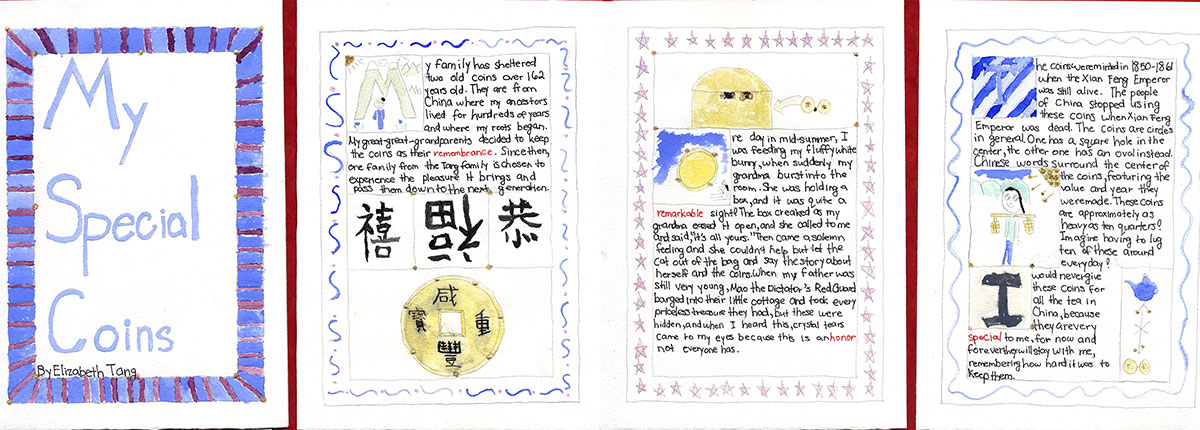 My
Special
Coins
By Elizabeth Tang
My family has sheltered
two old coins over 162
years old. They are from
China where my ancestors
lived for hundreds of years
and where my roots began.
My great-great-grandparents decided to keep
the coins as their remembrance. Since then,
one family from the Tang family is chosen to
experience the pleasure it brings and
pass them down to the next generation.
禧 福 恭
咸
寶 重
豐
ne day in mid-summer, I
was feeding my fluffy white
bunny, when suddenly my
grandma burst into the
room. She was holding a
box, and it was quite a
remarkable sight! The box creaked as my
grandma eased it open, and she called to me
and said, "it's all yours." Then came a solemn
feeling and she couldn't help but let the
cat out of the bag and say the story about
herself and the coins. When my father was
still very young, Mao the Dictator's Red Guard
barged into their little cottage and took every
priceless treasure they had, but these were
hidden, and when I heard this, crystal tears
came to my eyes because this is an honor
not everyone has.
The coins were minted in 1850-1861
when the Xian Feng Emperor
was still alive. The people
of China stopped using
these coins when Xian Feng
Emperor was dead. The coins are circles
in general. One has a square hole in the
center, the other one has an oval instead.
Chinese words surround the center of
the coins, featuring the
value and year they
were made. These coins
are approximately as
heavy as ten quarters!
Imagine having to lug
ten of these around
everyday!
I would never give
these coins for
all the tea in
China, because
they are very
special to me, for now and
forever they will stay with me,
remembering how hard it was to
keep them.